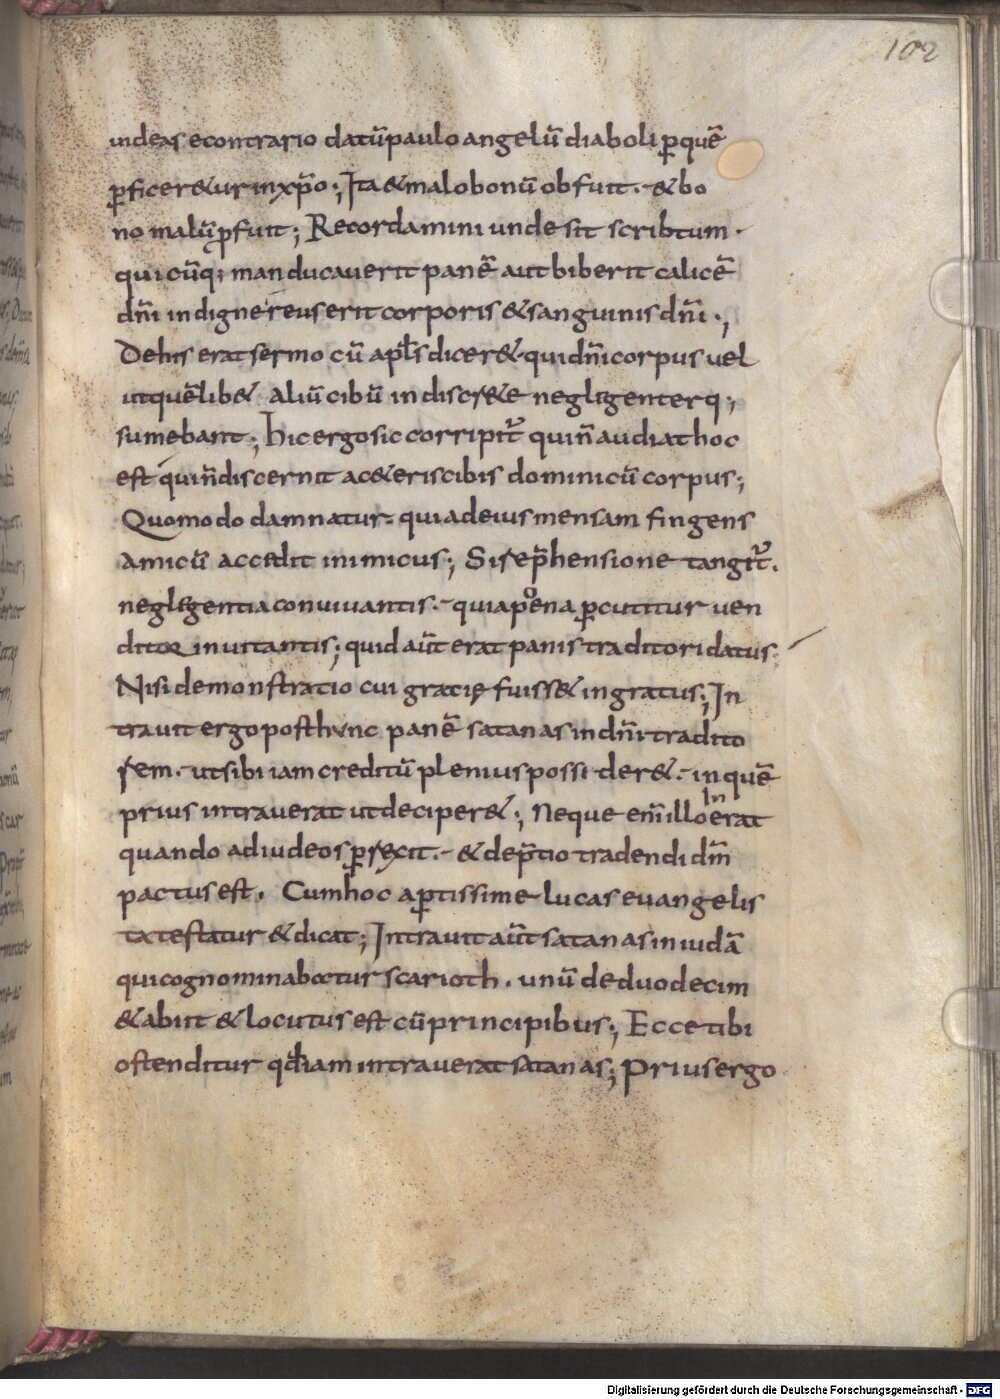 102
uideas econtrario datū paulo angelū diaboli p̲ quē
p̲ficer&ur inxp̄o ; Ita & malo bonū obfuit .· & bo
no malū p̲fuit ; Recordamini unde sit scribtum ·
quicūq; manducauerit panē aut biberit calicē
dn̄i indigne reus erit corporis & sanguinis dn̄i .,
De his erat sermo cū apl̄s dicer& · qui dn̄i corpus uel
ut quēlib& aliū cibū indiscr&e neglegenterq;
sumebant ; hic ergo sic corripit̄ qui n̄ audiat hoc
est qui n̄ discernit a c&eris cibis dominicū corpus ;
Quomodo damnatur · qui ad eius mensam fingens
amicū accedit inimicus ; Si rep̄hensione tangit̄ .
neglegentia conuiuantis .· qui a poena p̲cutitur uen
ditor inuitantis ; quid aūt erat panis traditori datus .
Nisi demonstratio cui gratię fuiss& ingratus ; In
trauit ergo post hunc panē satanas in dn̄i tradito
rem .· ut sibi iam creditū plenius possider& .· in quē
prius intrauerat ut deciper& ; Neque eni̅ illo In erat
quando ad iudeos p̲rexit .· & de p̄tio tradendi dn̄m
pactus est . Cum hoc ap̲tissime lucas euangelis
ta testatur & dicat ; Intrauit aūt satanas in iudā
qui cognominabatur scarioth . unū de duodecim
& abiit & locutus est cū principibus ; Ecce tibi
ostenditur qđ iam intrauerat satanas ; Prius ergo
Digitalisierung gefördert durch die Deutsche Forschungsgemeinschaft - DFG